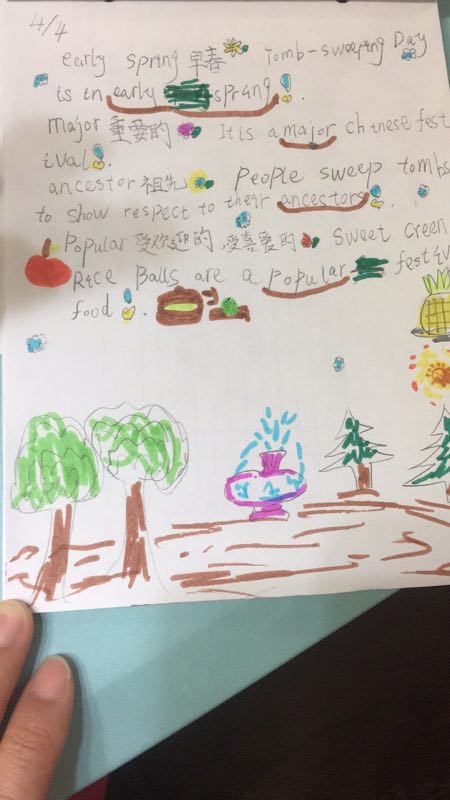 4/4
early spring 早春 Tomb-sweeping Day
is in early spring.
major 重要的 It is a major Chinese fest
ival.
ancestor 祖先 People sweep tombs
to show respect to their ancestors.
Popular 受欢迎的,受喜爱的 Sweet Green
Rice Balls are a popular festiv
food.